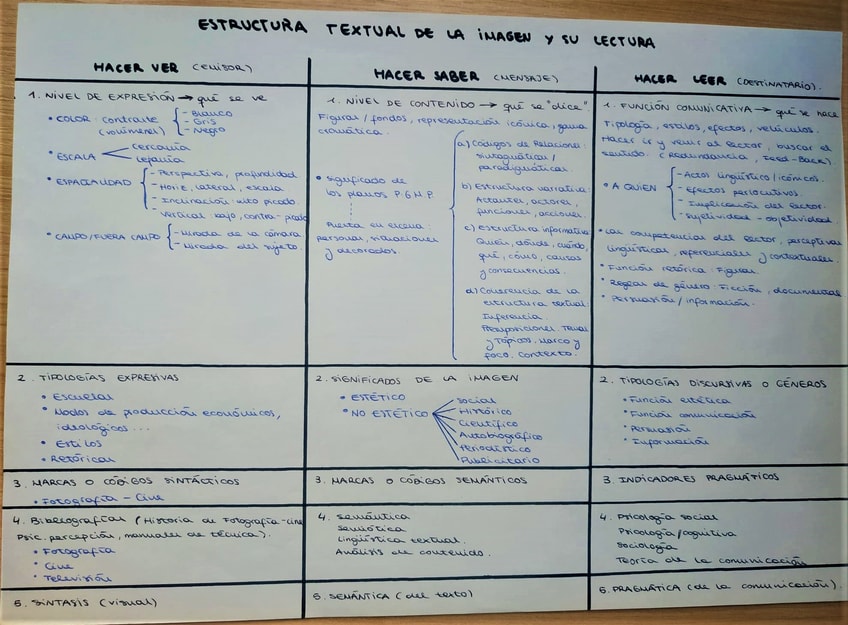 ESTRUCTURA TEXTUAL DE LA IMAGEN Y SU LECTURA
HACER VER (EMISOR)
1. NIVEL DE EXPRESIÓN → qué se ve
• COLOR: contraste (volúmenes)
- Blanco
- Gris
- Negro
• ESCALA
cercanía
lejanía
• ESPACIALIDAD
- Perspectiva, profundidad
- Horiz, lateral, escala
- Inclinación: alto picado.
- Vertical: bajo, contra-picado
• CAMPO/FUERA CAMPO
- Mirada de la cámara.
- Mirada del sujeto.
2. TIPOLOGÍAS EXPRESIVAS
• Escuelas
• Modos de producción económicos,
ideológicos...
• Estilos
• Retóricas
3. MARCAS O CÓDIGOS SINTÁCTICOS
• Fotografía - Cine
4. Bibliografías (Historia de Fotografía-cine
Psic. percepción, manuales de técnica).
• Fotografía
• Cine
• Televisión
5. SINTASIS (visual)
HACER SABER (MENSAJE)
1. NIVEL DE CONTENIDO → qué se "dice"
Figuras/fondos, representación icónica, gama
cromática.
• Significado de
los planos P.G.M.P.
Puesta en escena:
personas, situaciones
y decorados.
a) Códigos de Relaciones:
sintagmáticas/
paradigmáticas.
b) Estructura narrativa:
Actantes, actores,
funciones, acciones.
c) Estructura informativa:
Quién, dónde, cuándo,
qué, cómo, causas
y consecuencias.
d) Coherencia de la
estructura textual:
Inferencia.
Presuposiciones. Temas
y Tópicos. Marco y
foco. Contexto.
2. SIGNIFICADOS DE LA IMAGEN
• ESTÉTICO
• NO ESTÉTICO
Social
Histórico
Científico
Autobiográfico
Periodístico
Publicitario
3. MARCAS O CÓDIGOS SEMÁNTICOS
4. Semántica
Semiótica
Lingüística textual.
Análisis de contenido.
5. SEMÁNTICA (del texto)
HACER LEER (DESTINATARIO).
1. FUNCIÓN COMUNICATIVA → qué se hace
Tipología, estilos, efectos, vehículos.
Hacer ir y venir al lector, buscar el
sentido. (Redundancia, Feed-Back).
• A QUIEN
- Actos lingüísticos/icónicos.
- Efectos perlocutivos.
- Implicación del lector.
- Subjetividad - objetividad
• Las competencias del lector, perceptivas
lingüísticas, referenciales y contextuales.
• Función retórica: Figuras.
• Reglas de género: Ficción, documental
• Persuasión/información.
2. TIPOLOGÍAS DISCURSIVAS O GÉNEROS
• Función estética
• Función comunicación
• Persuasión
• Información
3. INDICADORES PRAGMÁTICOS
4. Psicología social
Psicología/cognitiva
Sociología
Teoría de la comunicación
5. PRAGMÁTICA (de la comunicación).